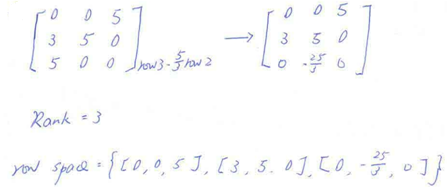 [0 0 5 3 5 0 5 0 0] row3-5/3 row2 → [0 0 5 3 5 0 0 -25/3 0]
Rank = 3
row space = {[0,0,5], [3,5.0], [0,-25/3,0]}